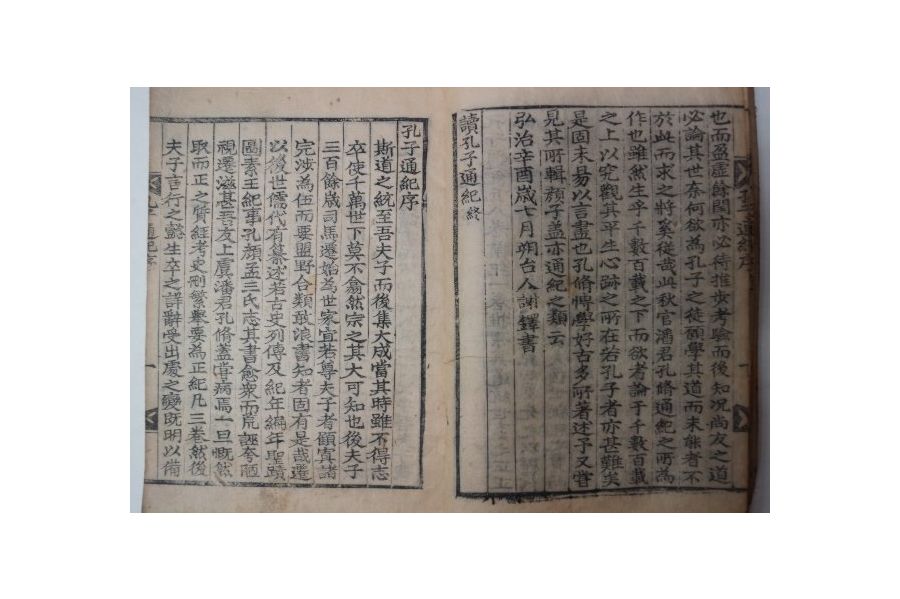 也而盈虛餘閏亦必待推步考驗而後知况尚友之道
必論其世奈何欲為孔子之徒願學其道而未能者不
於此而求之將奚從哉此秋官潘君孔脩通紀之所為
作也雖然生乎千數百載之下而欲考論于千數百載
之上以究觀其平生心跡之所在若孔子者亦甚難矣
是固未易以言盡也孔脩惇學好古多所著述予又嘗
見其所輯顔子盖亦通紀之類云
弘治辛酉歳七月朔台人謝鐸書
讀孔子通紀終
孔子通紀序
斯道之統至吾夫子而後集大成當其時雖不得志
卒使千萬世下莫不翕然宗之其大可知也後夫子
三百餘歳司馬遷始為世家宜若尊夫子者顧寘諸
完涉為伍而要盟野合類敢浪書知者固有是哉遷
以後世儒代有纂述若古史列傳及紀年編年聖蹟
圖素王紀事孔顔孟三氏志其書愈衆而荒誣夸陋
視遷滋甚吾友上虞潘君孔脩盖嘗病焉一旦慨然
取而正之質經考史刪繁舉要為正紀凡三卷然後
夫子言行之懿生卒之詳辭受出處之變既明以備
通紀序
一